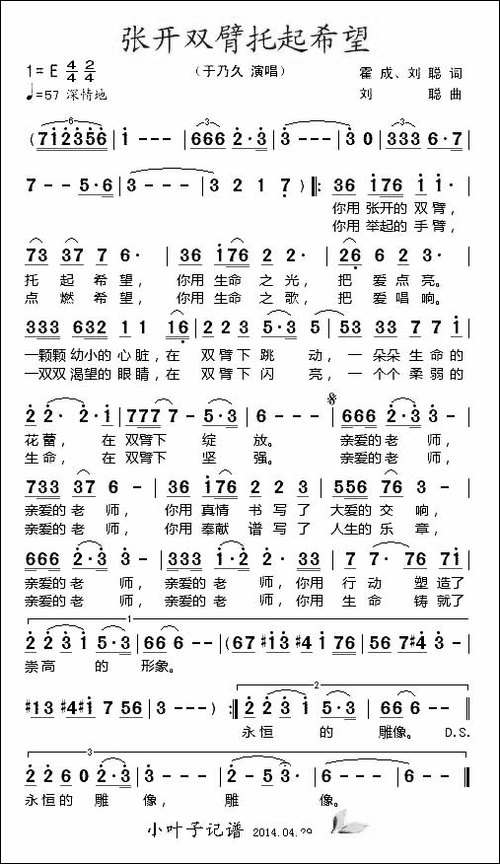 张开双臂托起希望
1=E 4/4 2/4 （于乃久 演唱） 霍 成、刘 聪 词
♩=57 深情地 刘 聪 曲
(712356 | 1 - - - | 666 2·3 | 3 - - - | 3 0 | 333 6·7 |
7 - - 5·6 | 3 - - - | 3 2 1 7 ) |: 36 176 1 1· |
你用 张开的 双 臂，
你用 举起的 手 臂，
73 37 7 6· | 36 176 2 2· | 26 6 5 3 - |
托 起 希 望， 你用 生命 之 光， 把 爱 点 亮。
点 燃 希 望， 你用 生命 之 歌， 把 爱 唱 响。
333 632 1 1 16 | 2 2 3 5·3 5 | 53 33 7 7 1 |
一颗颗 幼小的 心 脏，在 双 臂 下 跳 动，一 朵朵 生 命 的
一双双 渴望的 眼 睛，在 双 臂 下 闪 亮，一 个个 柔 弱 的
2 2· 2·1 | 777 7 - 5·3 | 6 - - - | 666 2·3 3 - |
花 蕾， 在 双臂下 绽 放。 亲爱的 老 师，
生 命， 在 双臂下 坚 强。 亲爱的 老 师，
733 37 6 - | 36 176 2 2 - | 556 76 3 - |
亲爱的 老 师， 你用 真情 书 写 了 大爱的 交 响，
亲爱的 老 师， 你用 奉献 谱 写 了 人生的 乐 章，
666 2·3 3 - | 333 1·2 2·3 | 7 7· 76 71 |
亲爱的 老 师， 亲爱的 老 师，你用 行 动 塑 造了
亲爱的 老 师， 亲爱的 老 师，你用 生 命 铸 就了
1
2 2 3 1 5·3 | 66 6 - - | (67 #13 #41 76 | 56 7#4 3 - |
崇 高 的 形象。
#13 #4#1 7 56 | 3 - - - ) :|
2
2 2 3 1 5·3 | 66 6 - - ‖
永 恒 的 雕像。 D.S.
3
2 2 6 0 2·3 | 3 - - - | 2 - 5 3· | 6 - - - | 6 - - - ‖
永 恒 的 雕 像， 雕 像。
小叶子记谱 2014.04.29